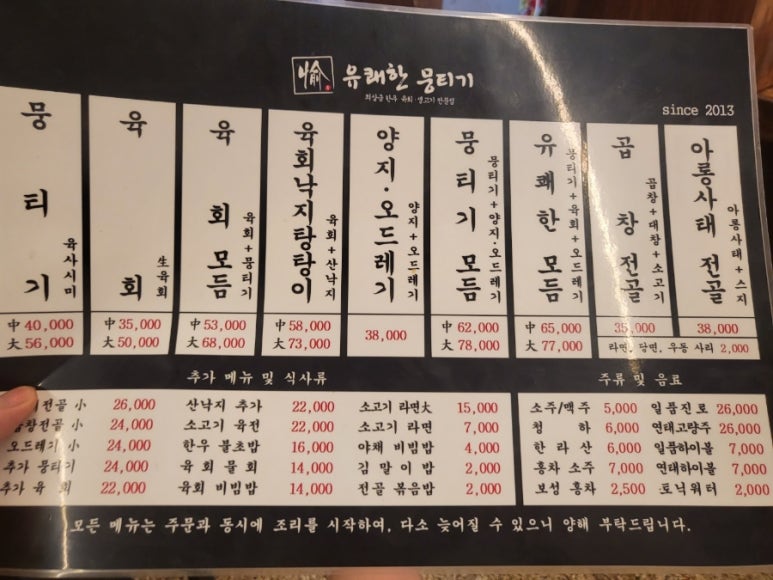 愉 유쾌한 뭉티기
최상급 한우 육회·생고기 전문점
since 2013
뭉티기 육사시미
中 40,000
大 56,000
육회 生육회
中 35,000
大 50,000
육회모듬 육회+뭉티기
中 53,000
大 68,000
육회낙지탕탕이 육회+산낙지
中 58,000
大 73,000
양지·오드레기 양지+오드레기
38,000
뭉티기모듬 뭉티기+양지·오드레기
中 62,000
大 78,000
유쾌한모듬 뭉티기+육회+오드레기
中 65,000
大 77,000
곱창전골 곱창+대창+소고기
35,000
아롱사태 전골 아롱사태+스지
38,000
라면, 당면, 우동 사리 2,000
추가 메뉴 및 식사류
전골 小 26,000
창전골 小 24,000
오드레기 小 24,000
추가 뭉티기 24,000
추가 육 회 22,000
산낙지 추가 22,000
소고기 육전 22,000
한우 불초밥 16,000
육 회 물 회 14,000
육회 비빔밥 14,000
소고기 라면大 15,000
소고기 라면 7,000
야채 비빔밥 4,000
김 말 이 밥 2,000
전골 볶음밥 2,000
주류 및 음료
소주/맥주 5,000
청 하 6,000
한 라 산 6,000
홍차 소주 7,000
보성 홍차 2,500
일품진로 26,000
연태고량주 26,000
일품하이볼 7,000
연태하이볼 7,000
토닉워터 2,000
모든 메뉴는 주문과 동시에 조리를 시작하여, 다소 늦어질 수 있으니 양해 부탁드립니다.